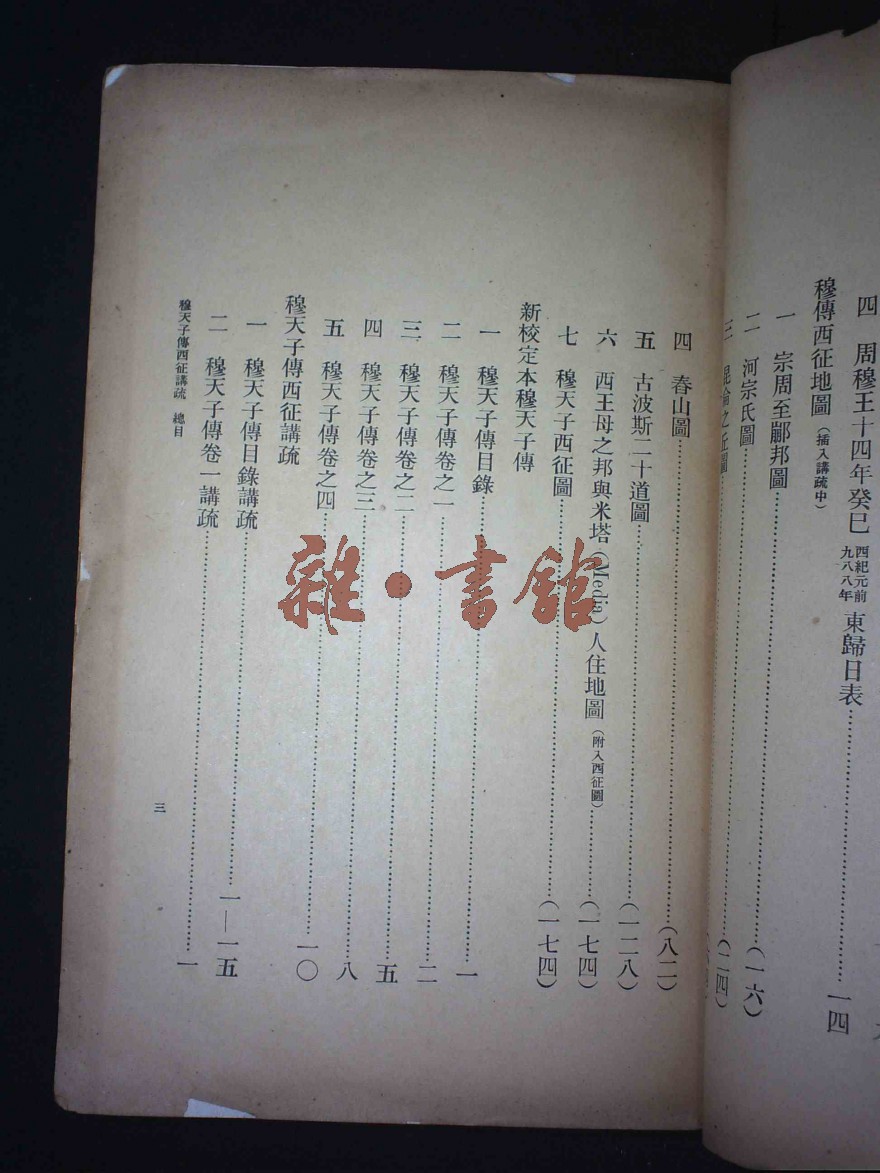 四 周穆王十四年癸巳 西紀元前九八八年 東歸日表……一四
穆傳西征地圖(插入講疏中)
一 宗周至䣙邦圖……(一六)
二 河宗氏圖……(二四)
三 昆侖之丘圖……
四 春山圖……(八二)
五 古波斯二十道圖……(一二八)
六 西王母之邦與米塔(Media)人住地圖(附入西征圖)……(一七四)
七 穆天子西征圖……(一七四)
新校定本穆天子傳
一 穆天子傳目錄……一
二 穆天子傳卷之一……二
三 穆天子傳卷之二……五
四 穆天子傳卷之三……八
五 穆天子傳卷之四……一〇
穆天子傳西征講疏
一 穆天子傳目錄講疏……一—一五
二 穆天子傳卷一講疏……一
穆天子傳西征講疏 總目
三
雜·書館